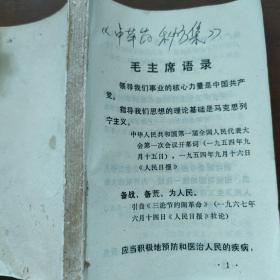 《中草药 秘方集》
毛主席语录
领导我们事业的核心力量是中国共产
党。
指导我们思想的理论基础是马克思列
宁主义。
中华人民共和国第一届全国人民代表大
会第一次会议开幕词（一九五四年九
月十五日），一九五四年九月十六日
《人民日报》
备战、备荒、为人民。
引自《三论节约闹革命》（一九六七年
六月十四日《人民日报》社论）
应当积极地预防和医治人民的疾病，
· 1 ·